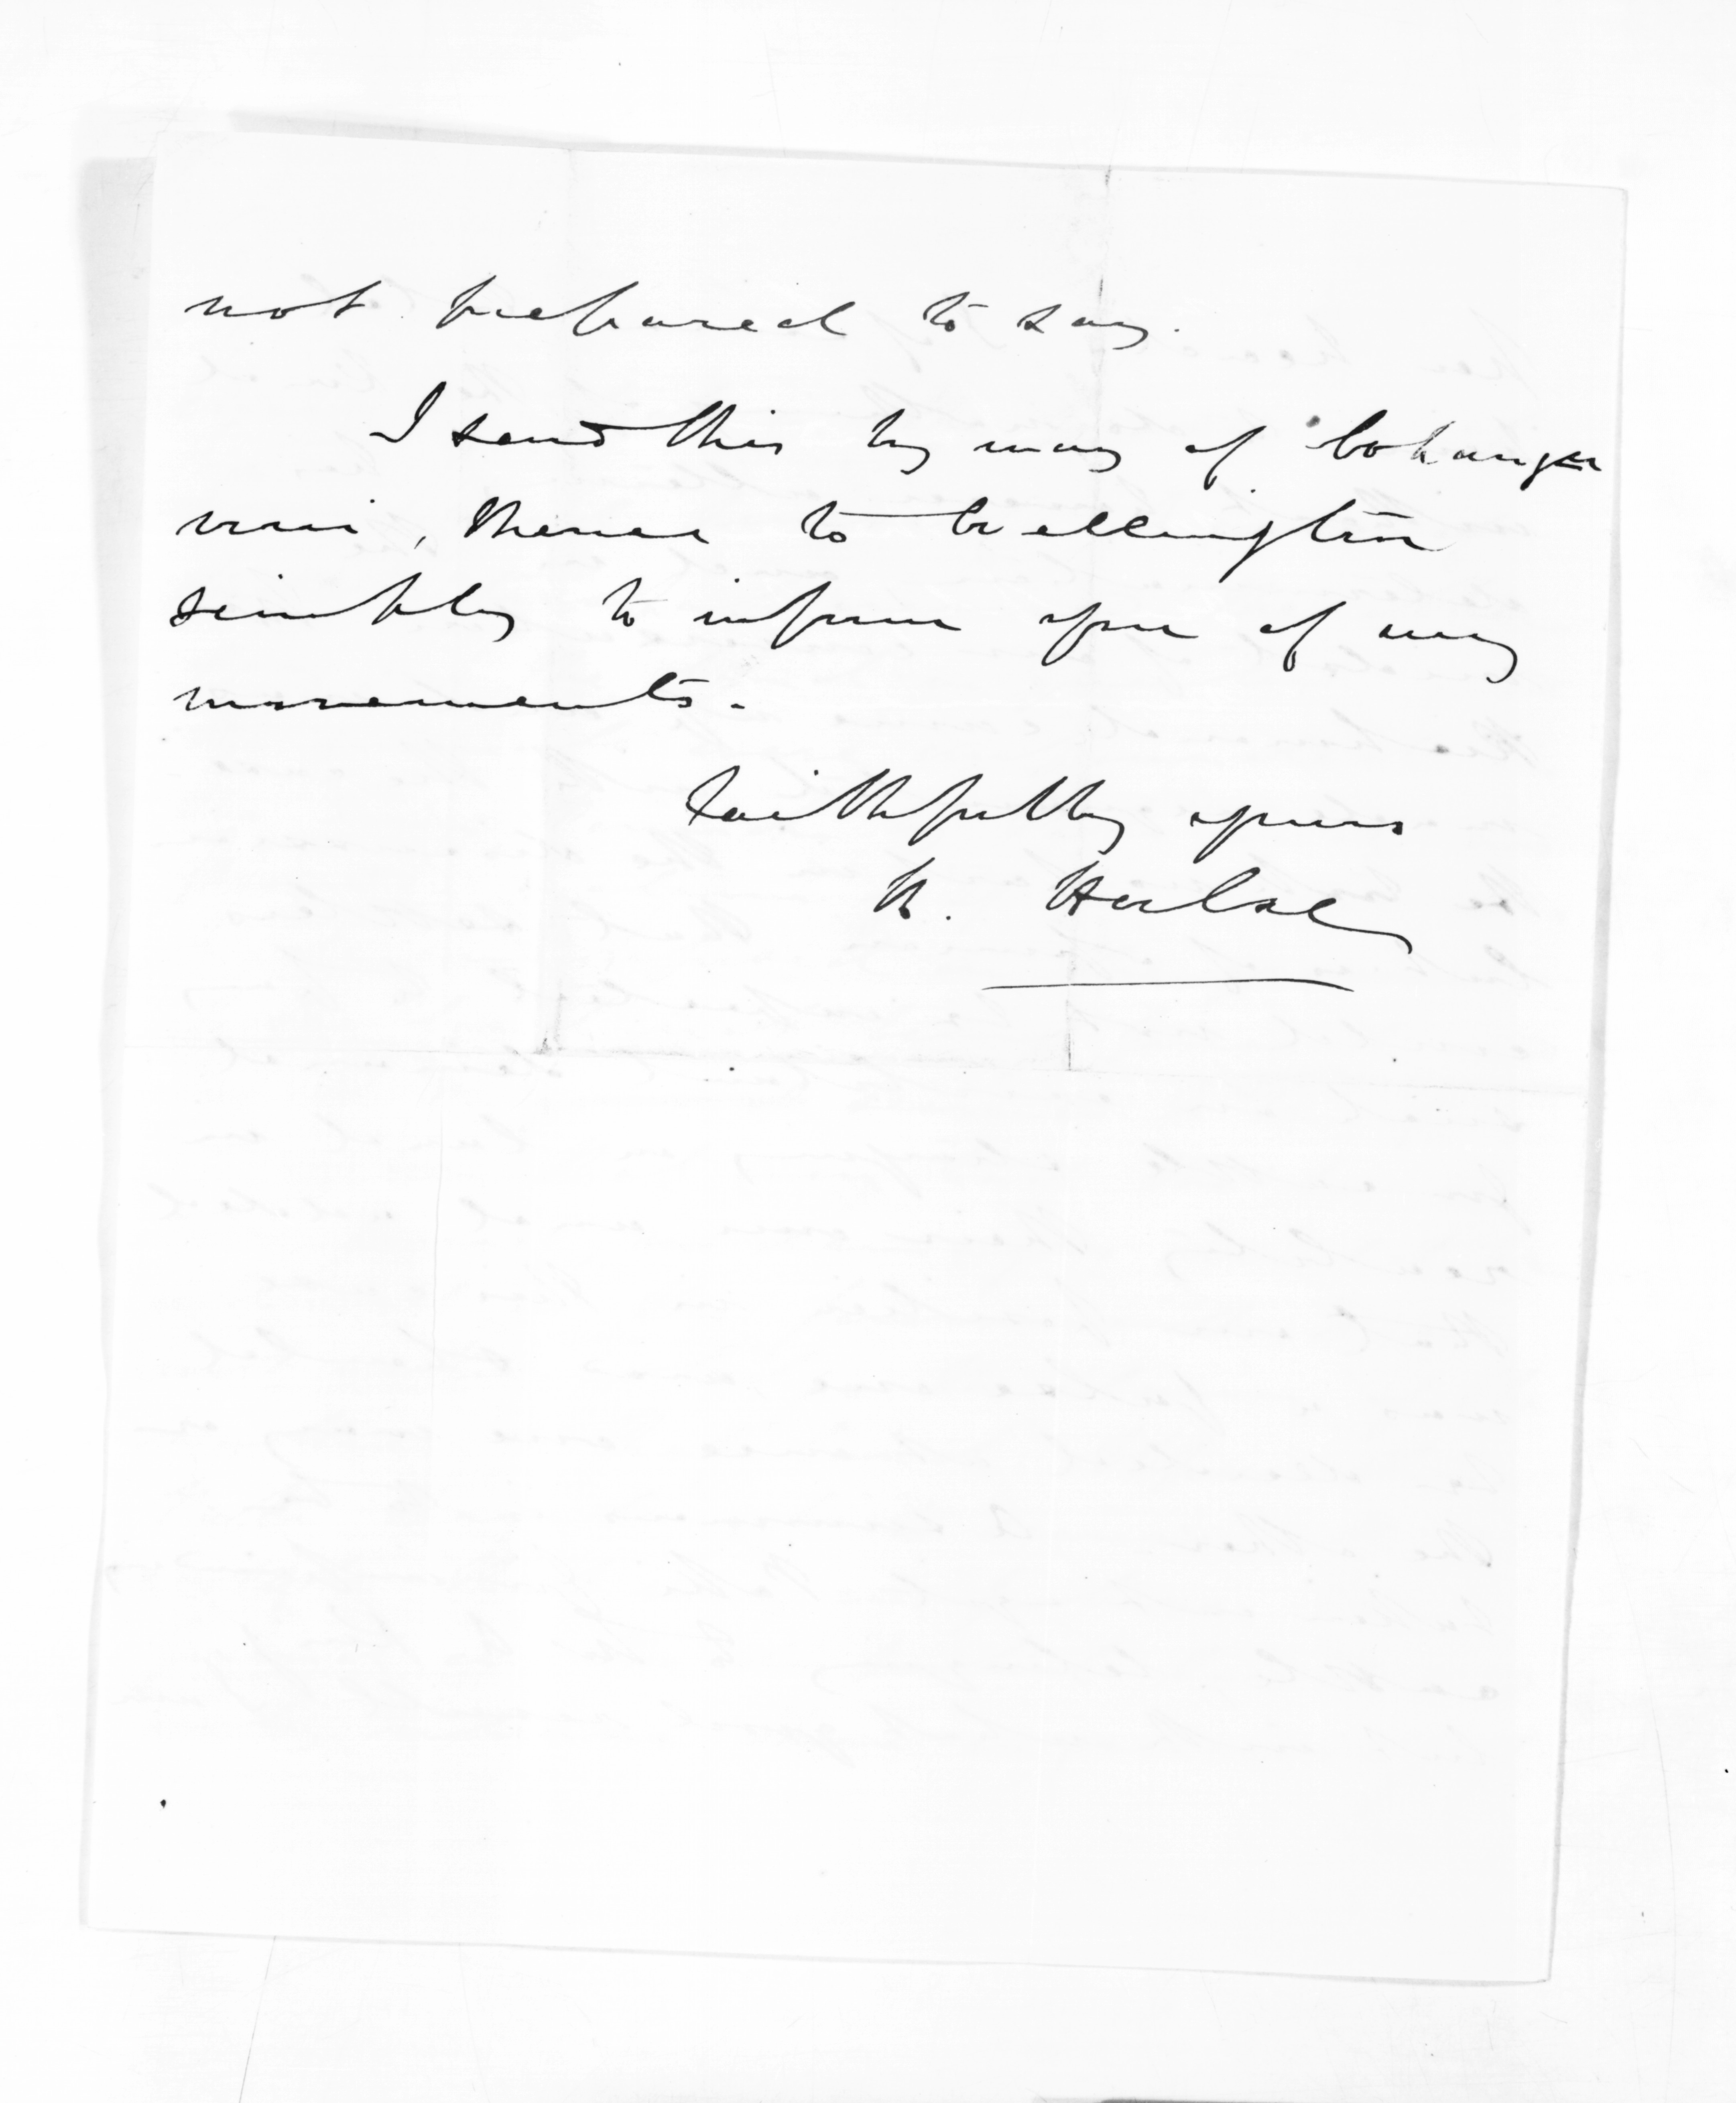 not prepared to say.
I send this by way of Whangan
nui, thence to Wellington
simply to inform you of my
movements.
Faithfully yours
H. Halse